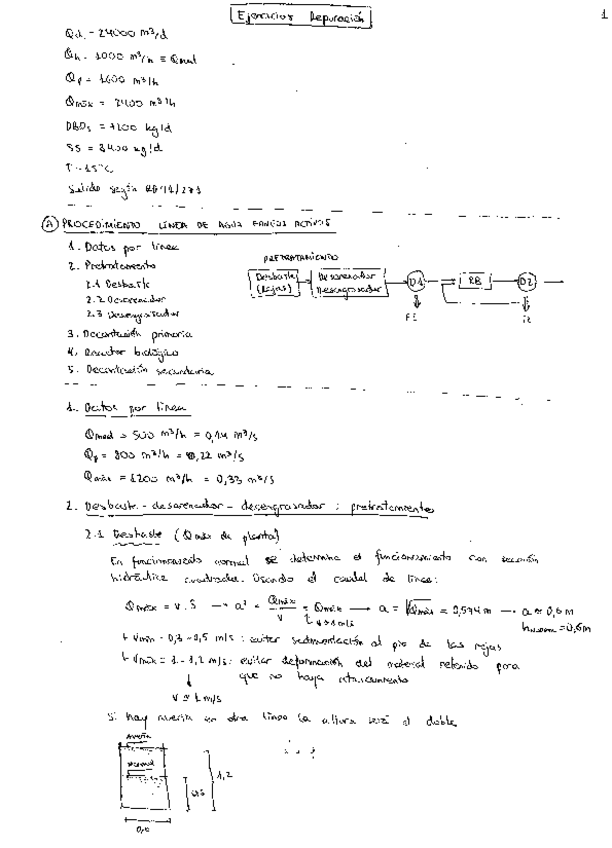 Ejercicios Depuración
1
Qd = 24000 m³/d
Qh = 1000 m³/h = Qmed
Qp = 1600 m³/h
Qmáx = 2400 m³/h
DBO₅ = 7200 kg/d
SS = 8400 kg/d
T = 15°C
Salida según 91/271
A PROCEDIMIENTO LÍNEA DE AGUA FANGOS ACTIVOS
1. Datos por línea
2. Pretratamiento
2.1 Desbaste
2.2 Desarenador
2.3 Desengrasador
3. Decantación primaria
4. Reactor biológico
5. Decantación secundaria
PRETRATAMIENTO
Desbaste (Rejas)
Desarenador Desengrasador
D1
RB
D2
F1
1. Datos por línea
Qmed = 500 m³/h = 0,14 m³/s
Qp = 800 m³/h = 0,22 m³/s
Qmáx = 1200 m³/h = 0,33 m³/s
2. Desbaste - desarenador - desengrasador : pretratamiento
2.1 Desbaste (Qmáx de planta)
En funcionamiento normal se determina el funcionamiento con sección
hidráulica cuadrada. Usando el caudal de línea:
Qmáx = v.S → a² = Qmáx/v = Qmáx → a = √Qmáx = 0,574 m → a ≈ 0,6 m
v ≈ 1 m/s
= 0,6m
vmin = : evitar sedimentación al pie de las rejas
vmáx = 1 - 1,2 m/s : evitar deformación del material retenido para
que no haya
v ≈ 1 m/s
Si hay avería en otra línea la altura será el doble
avería
normal
0,6
1,2
0,6